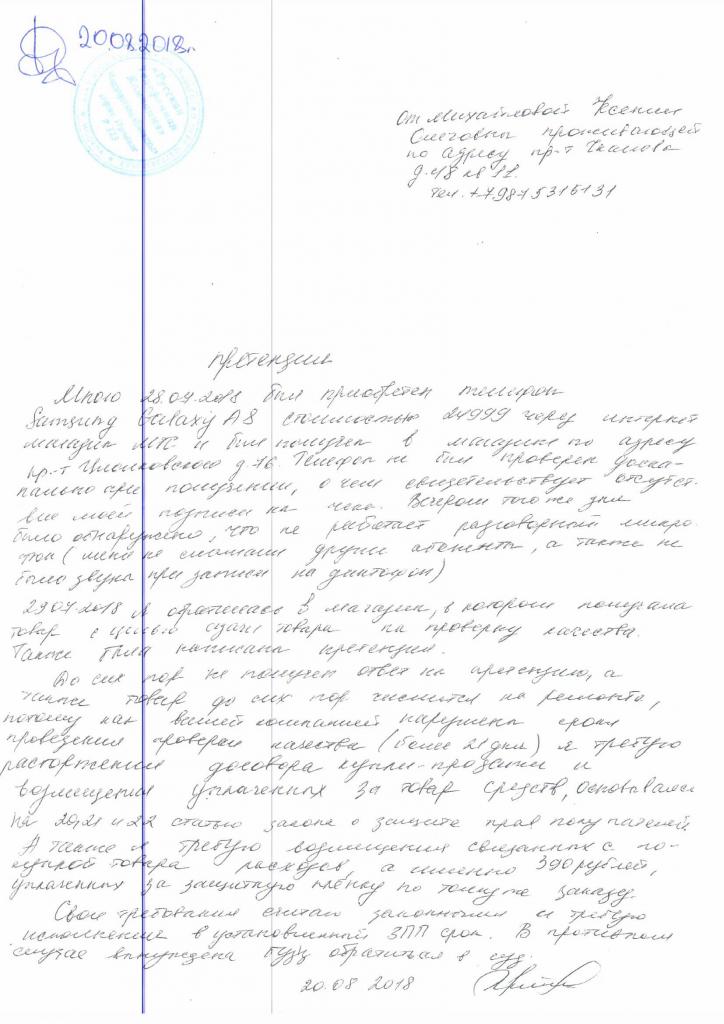 20.08.2018г.
От Михайловой Ксении
Олеговны проживающей
по адресу пр-т Чкалова
д. 48 кв 11.
тел. +79875315131
Претензия
Мною 28.07.2018 был приобретен телефон
Samsung Galaxy A8 стоимостью 24999 через интернет
магазин МТС и был получен в магазине по адресу
пр-т Циолковского д. 76. Телефон не был проверен доска-
нально при получении, о чем свидетельствует отсутст.
вие моей подписи на чеке. Вечером того же дня
было обнаружено, что не работает разговорный микро-
фон (меня не слышали другие абоненты, а также не
было звука при записи на диктофон)
29.07.2018 я обратилась в магазин, в котором получала
товар с целью сдачи товара на проверку качества.
Также была написана претензия.
До сих пор не получен ответ на претензию, а
также товар до сих пор числится на ремонте,
потому как вашей компанией нарушены сроки
проведения проверки качества (более 21 дня) я требую
расторжения договора купли-продажи и
возмещения уплаченных за товар средств, основываясь
на 20,21 и 22 статью закона о защите прав покупателей
А также я требую возмещения связанных с по-
купкой товара расходов, а именно 390 рублей,
уплаченных за защитную плёнку по тому же заказу.
Свои требования считаю законными и требую
исполнение в установленный ЗПП срок. В противном
случае вынуждена буду обратиться в суд.
20.08 2018